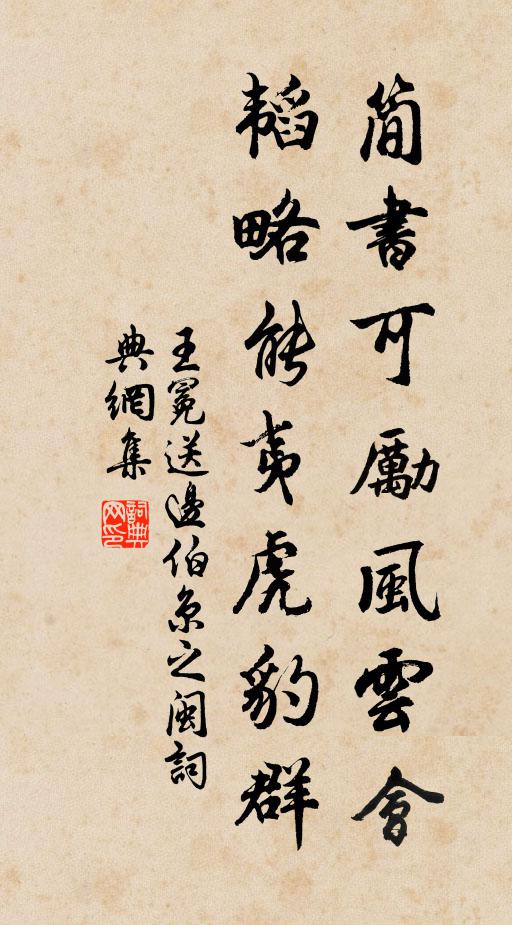 簡書可勵風雲會
韜略能夷虎豹群
王冕送邊伯京之閩詞
典網集
詞典网印